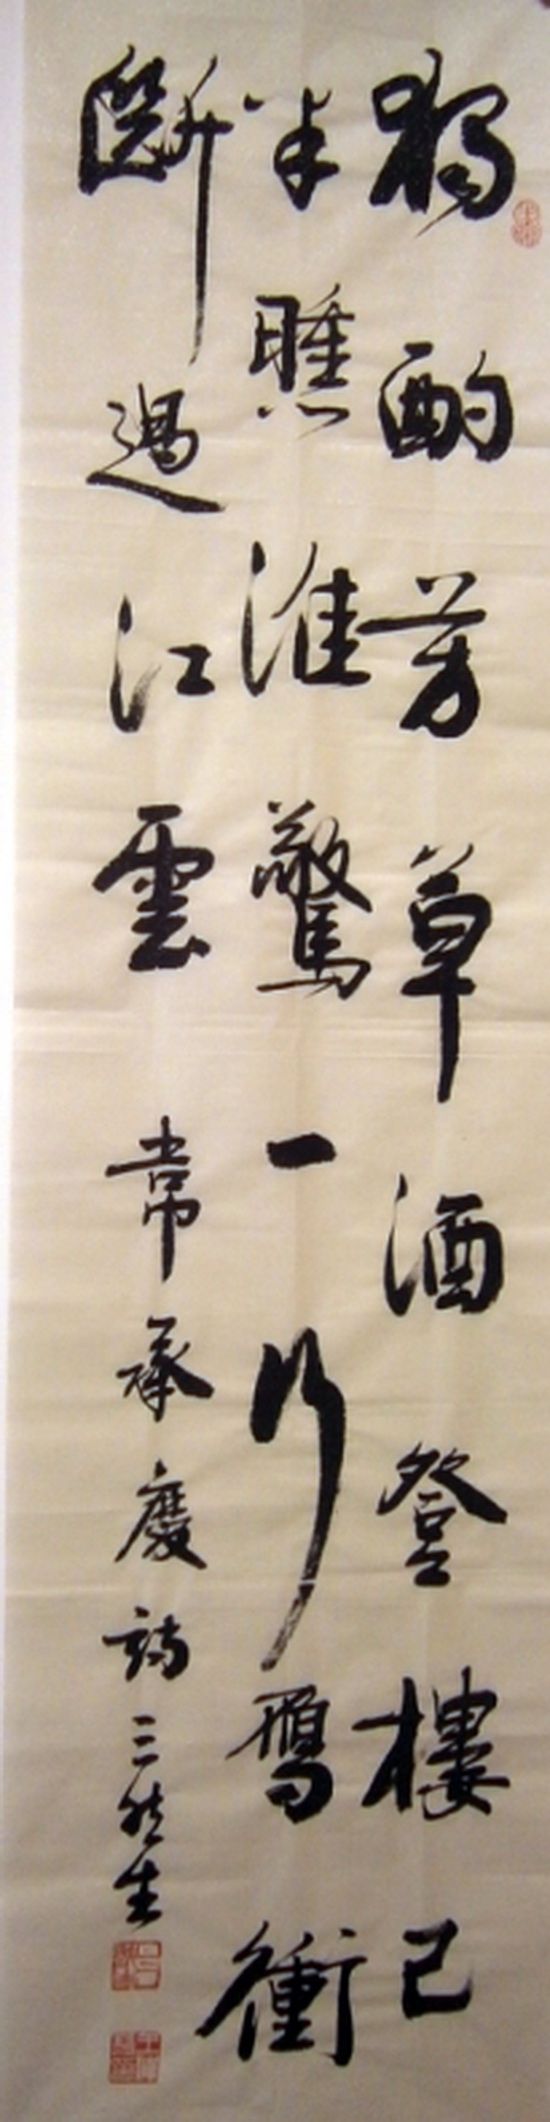 獨酌芳草酒登樓已
半醺誰驚一行雁衝
斷過江雲 常承慶詩 三然生